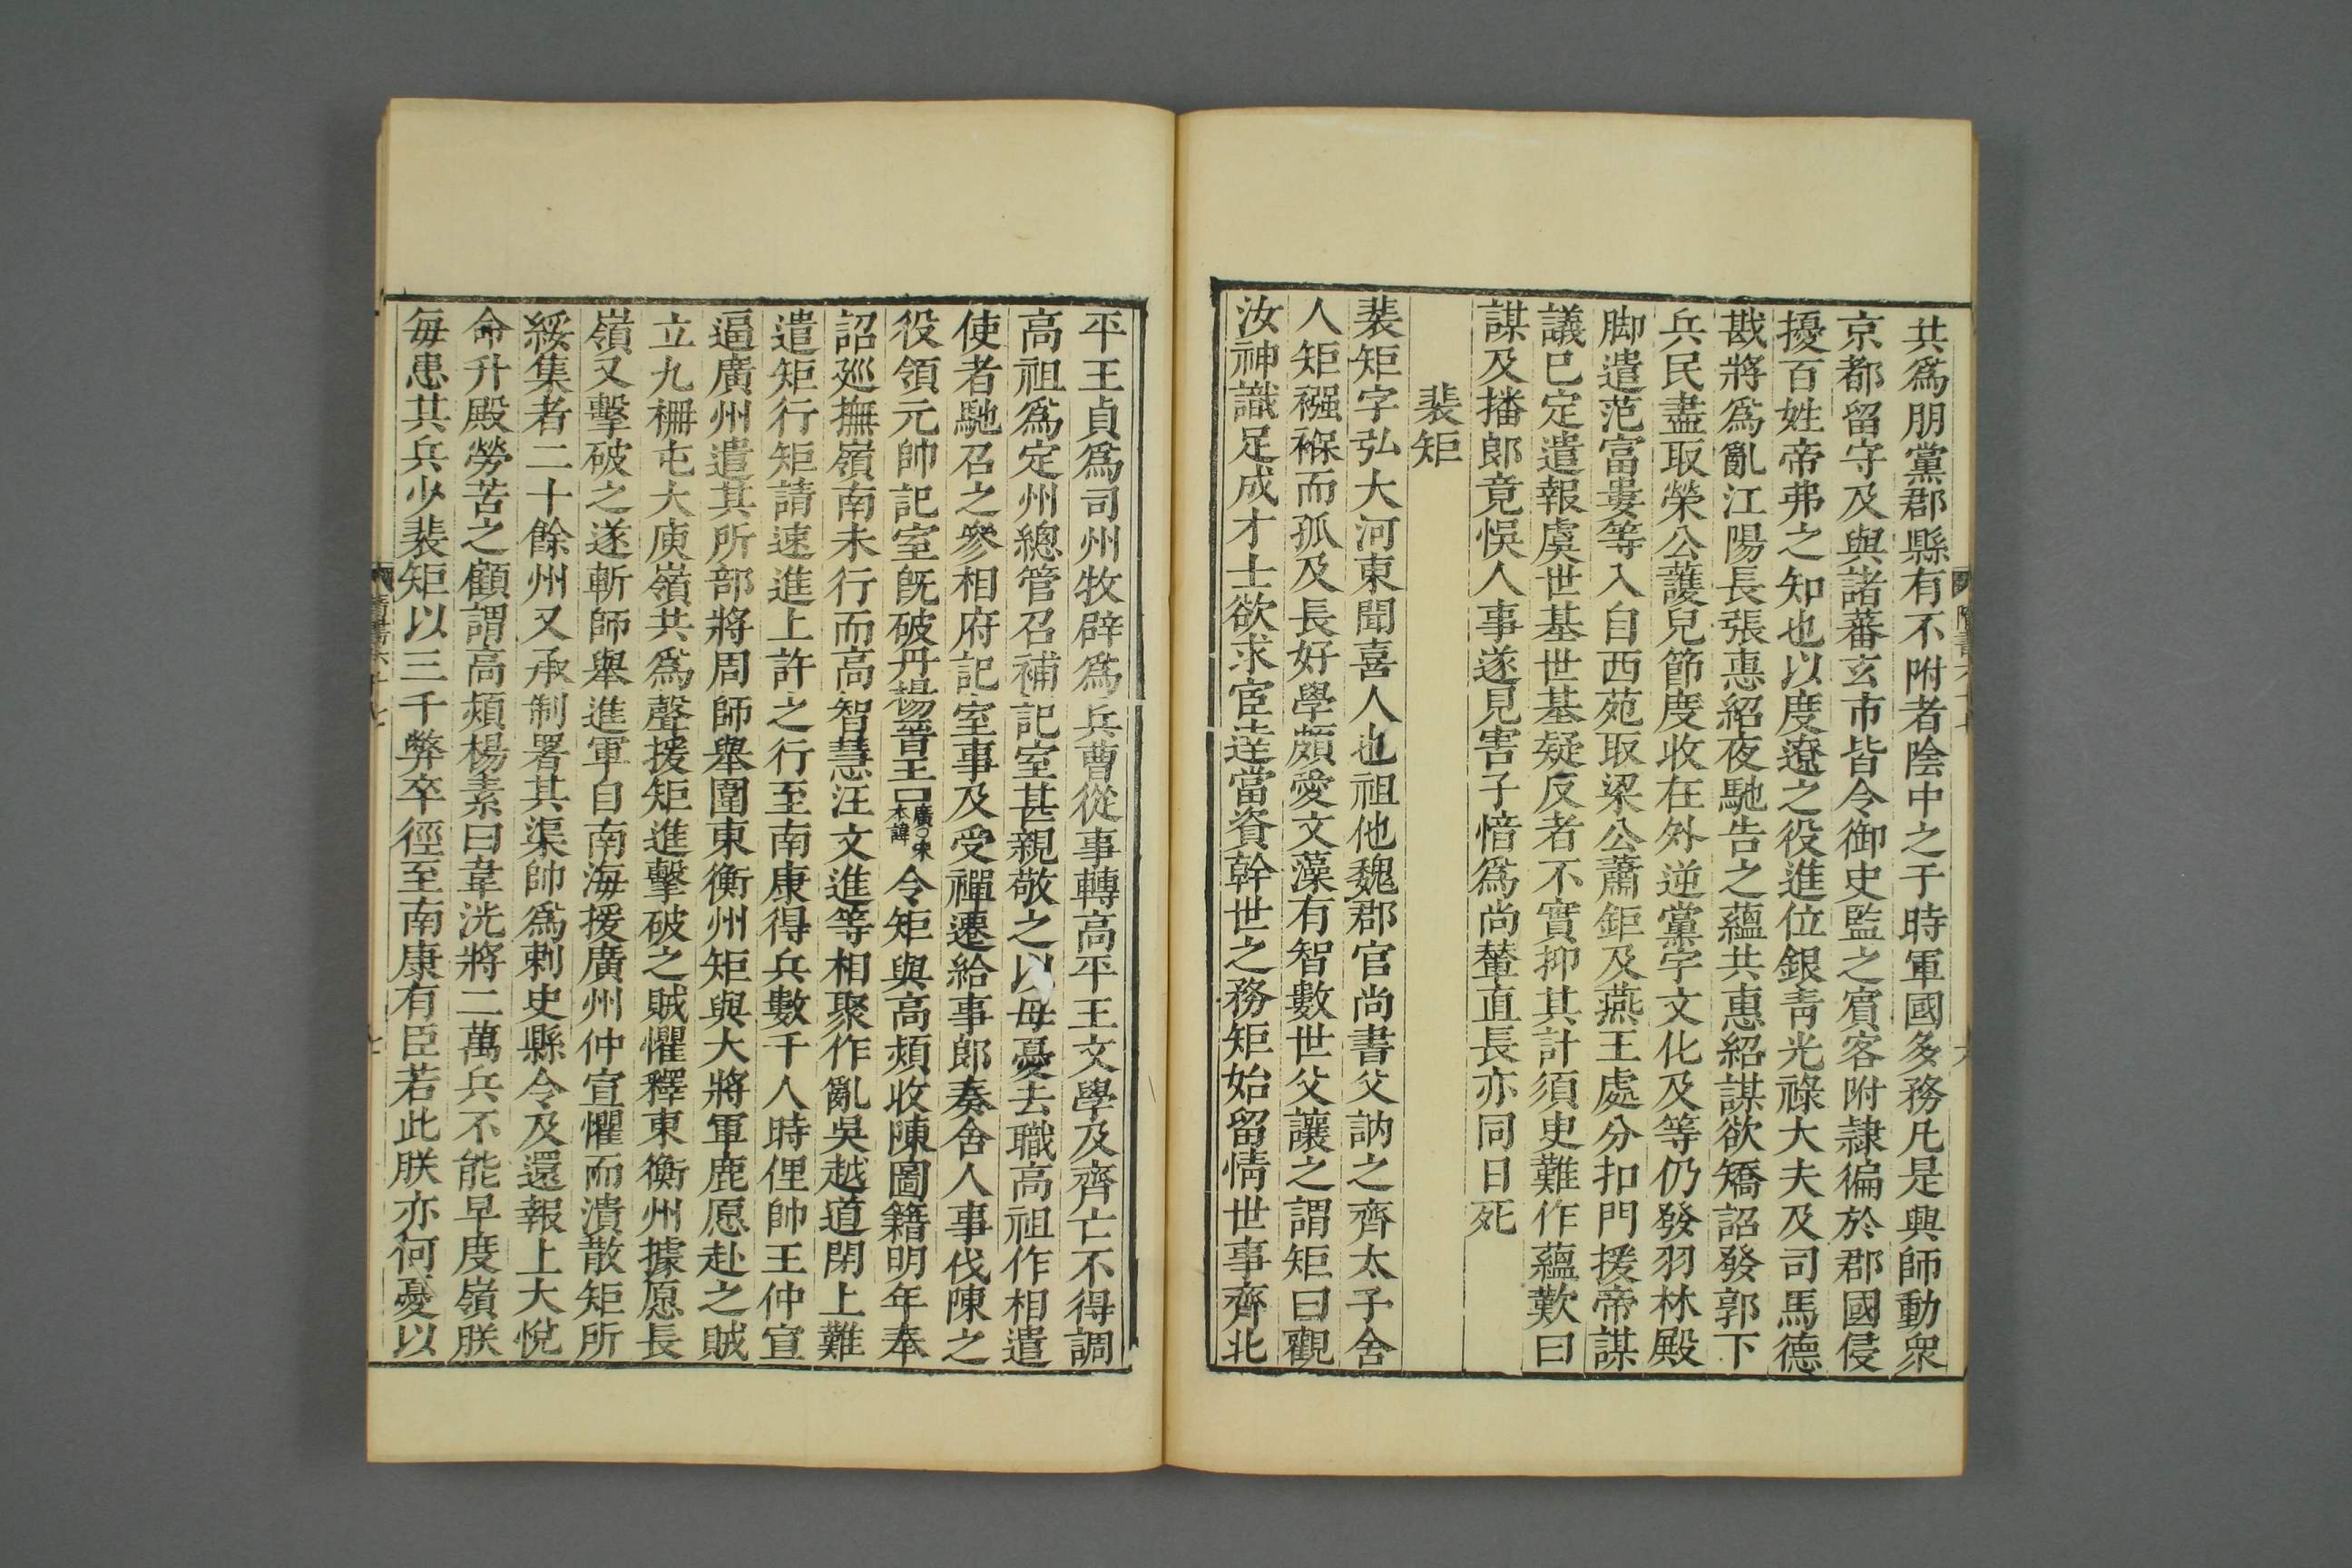 共爲朋黨郡縣有不附者陰中之于時軍國多務凡是興師動衆
京都留守及與諸蕃玄市皆令御史監之賓客附隷徧於郡國侵
擾百姓帝弗之知也以度遼之役進位銀青光祿大夫及司馬德
戡將爲亂江陽長張惠紹夜馳告之蘊共惠紹謀欲矯詔發郭下
兵民盡取榮公護兒節度收在外逆黨宇文化及等仍發羽林殿
脚遣范富婁等入自西苑取梁公蕭鉅及燕王處分扣門援帝謀
議已定遣報虞世基世基疑反者不實抑其計須史難作蘊歎曰
謀及播郎竟悞人事遂見害子愔爲尚輦直長亦同日死
裴矩
裴矩字弘大河東聞喜人也祖他魏郡官尚書父訥之齊太子舍
人矩襁褓而孤及長好學頗愛文藻有智數世父讓之謂矩曰觀
汝神識足成才士欲求宦達當資幹世之務矩始留情世事齊北
平王貞爲司州牧辟爲兵曹從事轉高平王文學及齊亡不得調
高祖爲定州總管召補記室甚親敬之以母憂去職高祖作相遣
使者馳召之參相府記室事及受禪遷給事郎奏舍人事伐陳之
役領元帥記室旣破丹楊晉王廣○宋本諱令矩與高熲收陳圖籍明年奉
詔巡撫嶺南未行而高智慧汪文進等相聚作亂吳越道閉上難
遣矩行矩請速進上許之行至南康得兵數千人時俚帥王仲宣
逼廣州遣其所部將周師舉圍東衡州矩與大將軍鹿愿赴之賊
立九柵屯大庾嶺共爲聲援矩進擊破之賊懼釋東衡州據愿長
嶺又擊破之遂斬師舉進軍自南海援廣州仲宣懼而潰散矩所
綏集者二十餘州又承制署其渠帥爲刺史縣令及還報上大悅
命升殿勞苦之顧謂高熲楊素曰韋洸將二萬兵不能早度嶺朕
每患其兵少裴矩以三千弊卒徑至南康有臣若此朕亦何憂以